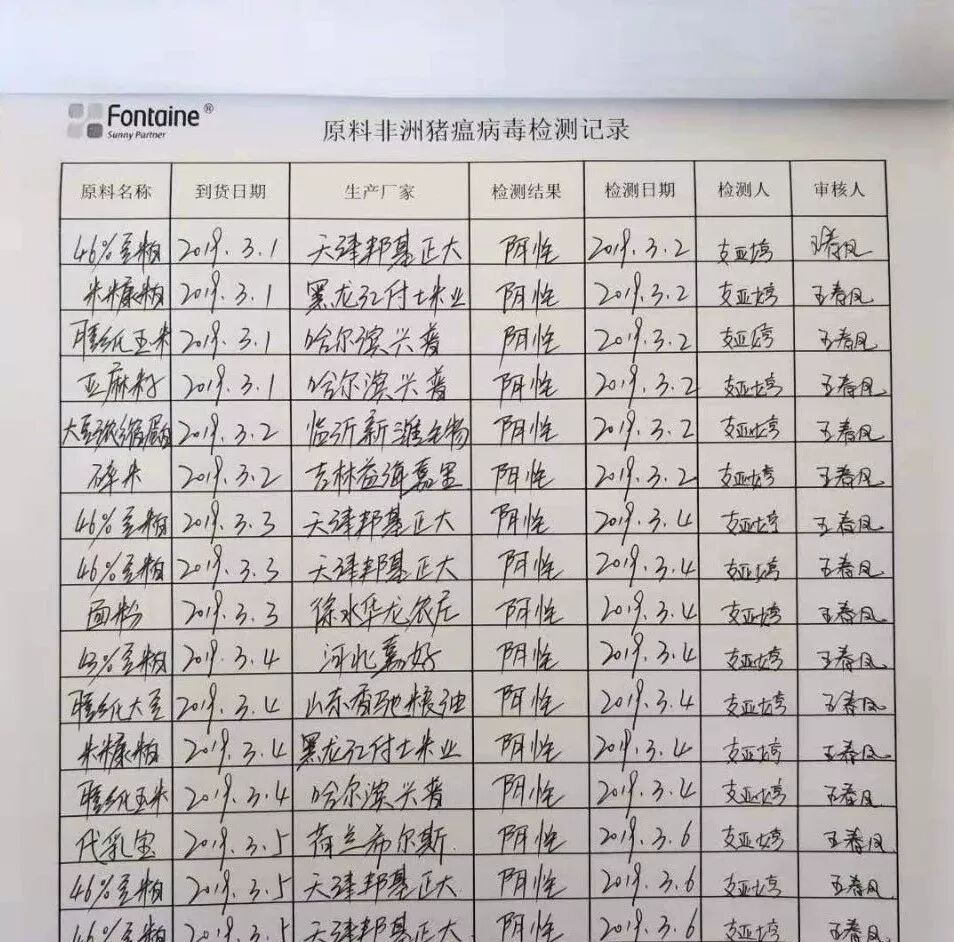 Fontaine®
Sunny Partner
原料非洲猪瘟病毒检测记录
原料名称 到货日期 生产厂家 检测结果 检测日期 检测人 审核人
46%豆粕 2019.3.1 天津邦基正大 阴性 2019.3.2 支亚婷 王春凤
米糠粕 2019.3.1 黑龙江付士米业 阴性 2019.3.2 支亚婷 王春凤
膨化玉米 2019.3.1 哈尔滨兴普 阴性 2019.3.2 支亚婷 王春凤
亚麻籽 2019.3.1 哈尔滨兴普 阴性 2019.3.2 支亚婷 王春凤
大豆浓缩蛋白 2019.3.2 临沂新潍生物 阴性 2019.3.2 支亚婷 王春凤
碎米 2019.3.2 吉林益海嘉里 阴性 2019.3.2 支亚婷 王春凤
46%豆粕 2019.3.3 天津邦基正大 阴性 2019.3.4 支亚婷 王春凤
46%豆粕 2019.3.3 天津邦基正大 阴性 2019.3.4 支亚婷 王春凤
面粉 2019.3.3 徐水华龙农庄 阴性 2019.3.4 支亚婷 王春凤
43%豆粕 2019.3.4 河北嘉好 阴性 2019.3.4 支亚婷 王春凤
膨化大豆 2019.3.4 山东香驰粮油 阴性 2019.3.4 支亚婷 王春凤
米糠粕 2019.3.4 黑龙江付士米业 阴性 2019.3.4 支亚婷 王春凤
膨化玉米 2019.3.4 哈尔滨兴普 阴性 2019.3.4 支亚婷 王春凤
代乳宝 2019.3.5 荷兰希尔斯 阴性 2019.3.6 支亚婷 王春凤
46%豆粕 2019.3.5 天津邦基正大 阴性 2019.3.6 支亚婷 王春凤
46%豆粕 2019.3.5 天津邦基正大 阴性 2019.3.6 支亚婷 王春凤